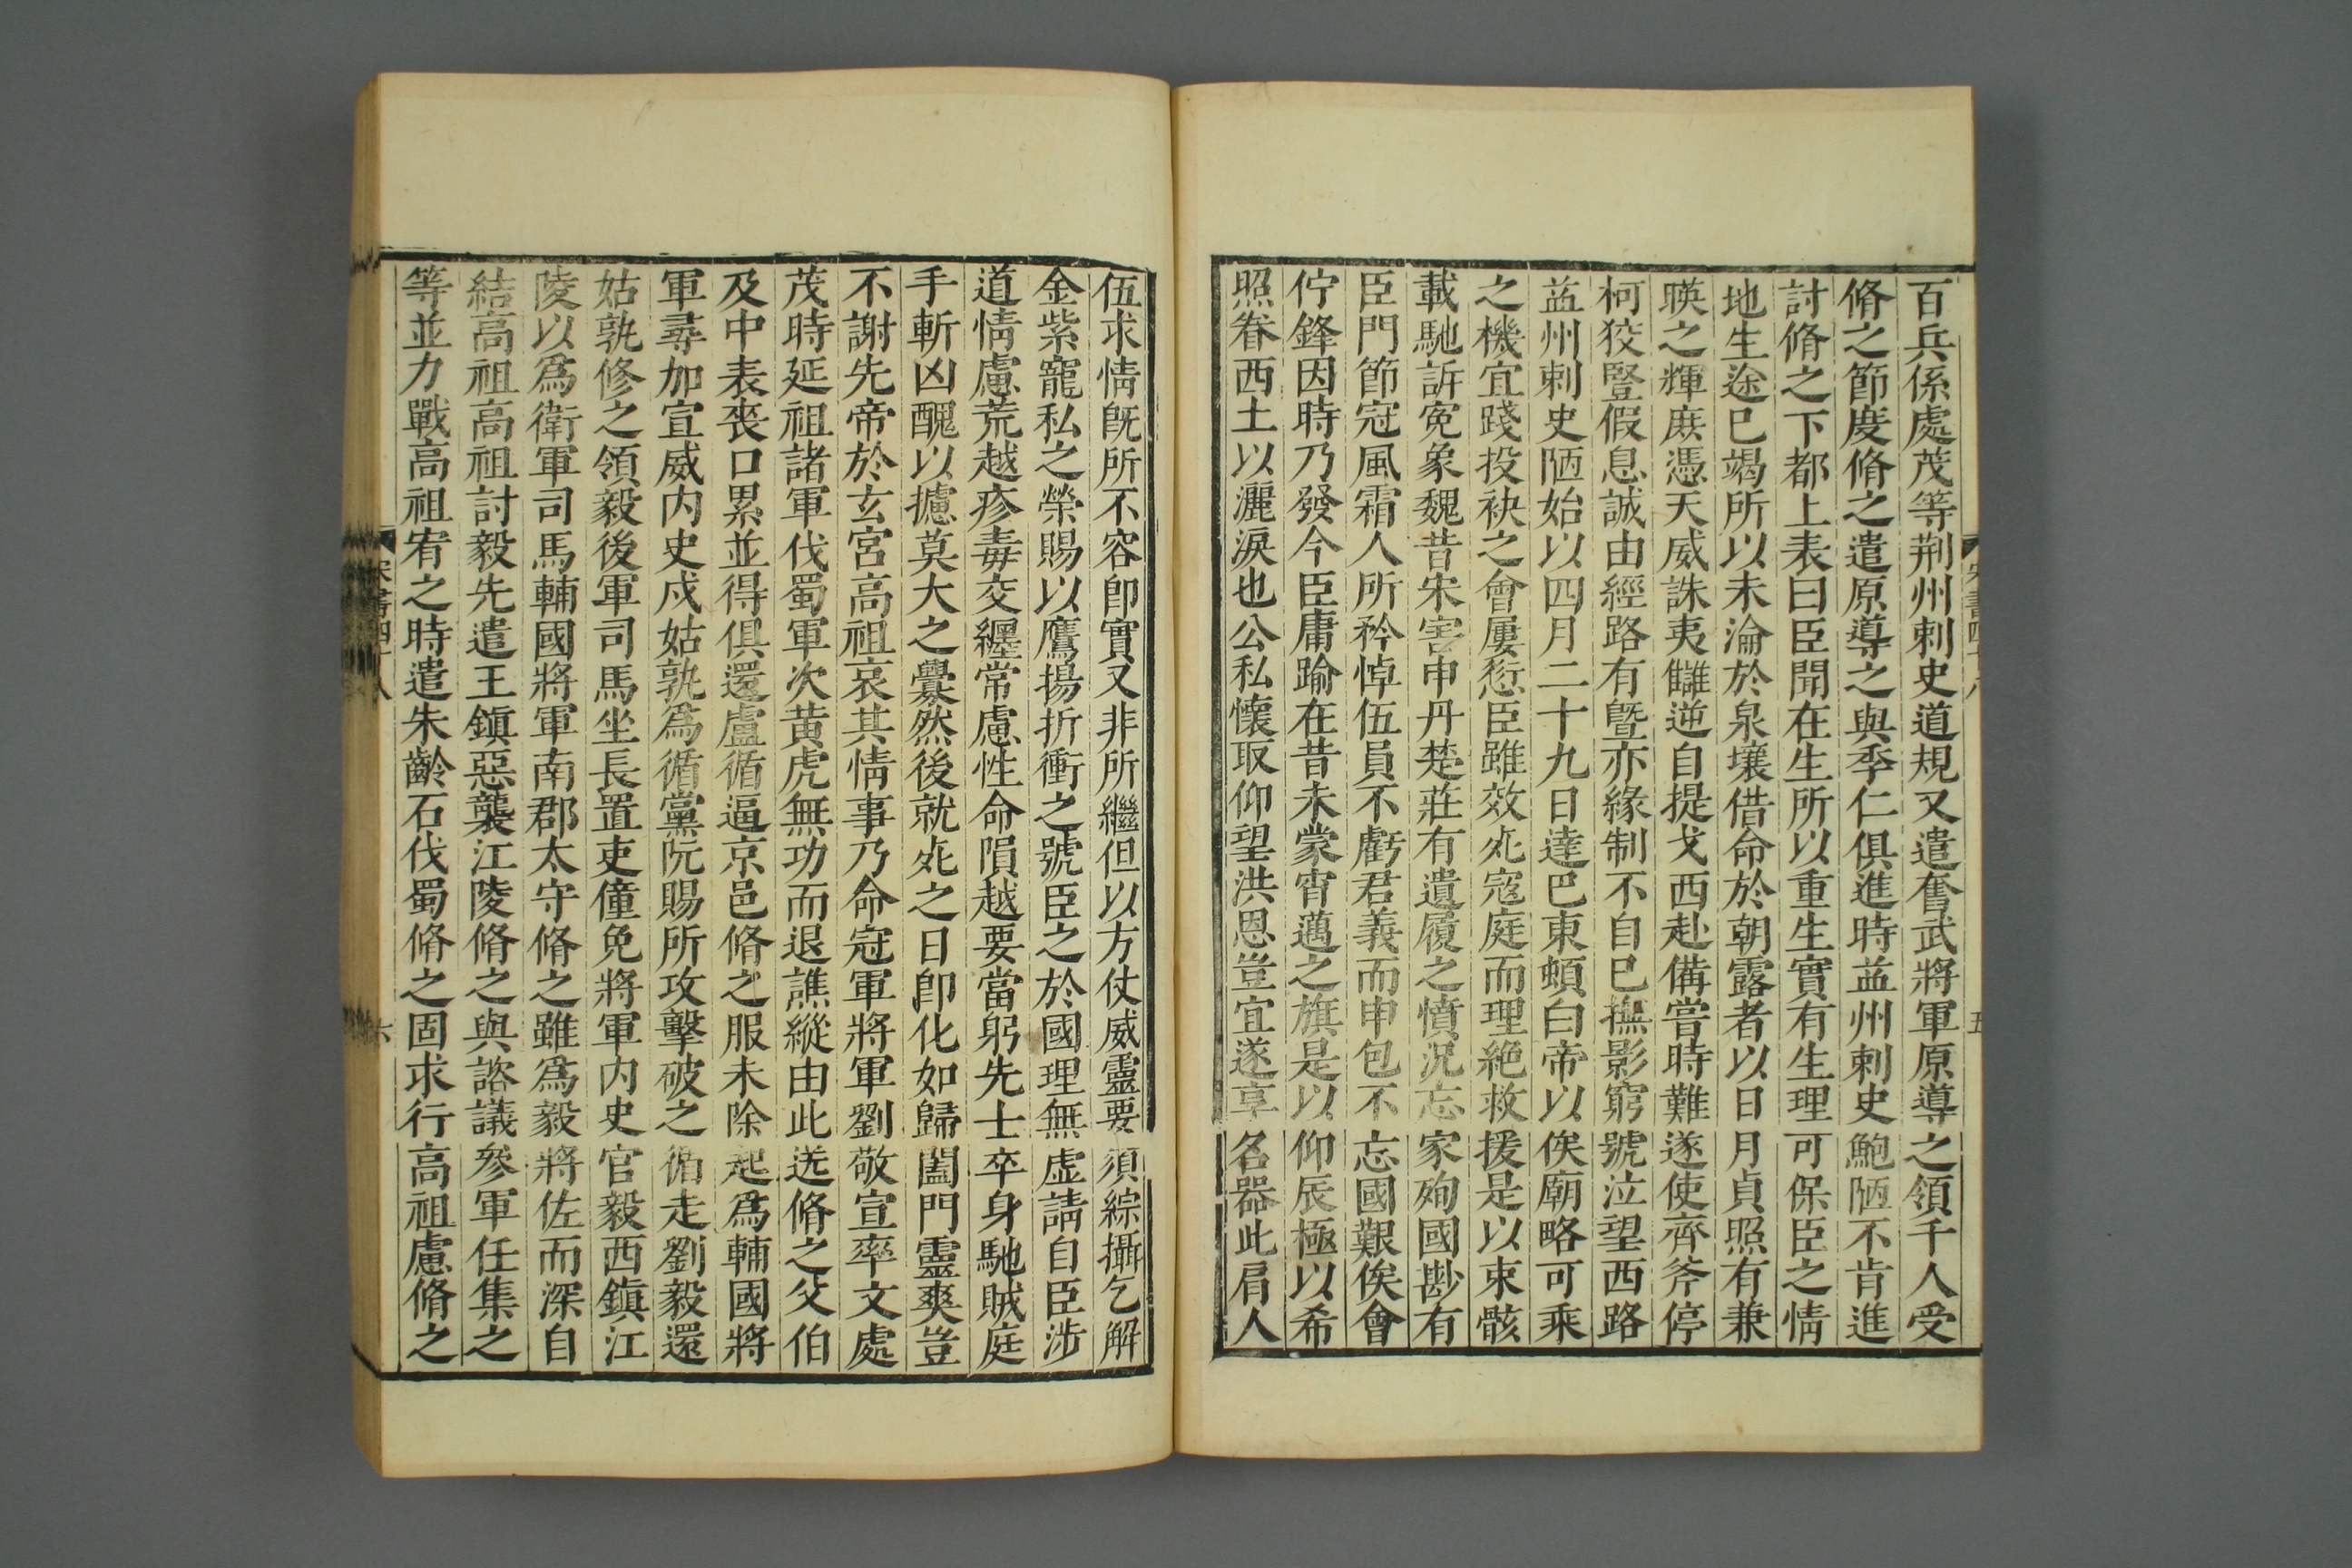 百兵係處茂等荆州刺史道規又遣奮武將軍原導之領千人受
脩之節度脩之遣原導之與季仁俱進時益州刺史鮑陋不肯進
討脩之下都上表曰臣聞在生所以重生實有生理可保臣之情
地生途已竭所以未淪於泉壤借命於朝露者以日月貞照有兼
暎之輝庶憑天威誅夷讎逆自提戈西赴備嘗時難遂使齊斧停
柯狡豎假息誠由經路有曁亦緣制不自已撫影窮號泣望西路
益州刺史陋始以四月二十九日達巴東頓白帝以俟廟略可乘
之機宜踐投袂之會屢愆臣雖效死寇庭而理絶救援是以束骸
載馳訴寃象魏昔宋害申丹楚莊有遺履之憤況忘家殉國尠有
臣門節冠風霜人所矜悼伍員不虧君義而申包不忘國艱俟會
佇鋒因時乃發今臣庸踰在昔未蒙宵邁之旗是以仰辰極以希
照眷西土以灑淚也公私懷耻仰望洪恩豈宜遂享名器此肩人
伍求情旣所不容卽實又非所繼但以方仗威靈要須綜攝乞解
金紫寵私之榮賜以鷹揚折衝之號臣之於國理無虛請自臣涉
道情慮荒越疹毒交纏常慮性命隕越要當躬先士卒身馳賊庭
手斬凶醜以攄莫大之釁然後就死之日卽化如歸闔門靈爽豈
不謝先帝於玄宮高祖哀其情事乃命冠軍將軍劉敬宣率文處
茂時延祖諸軍伐蜀軍次黄虎無功而退譙縱由此送脩之父伯
及中表喪口累並得俱還盧循逼京邑脩之服未除起爲輔國將
軍尋加宣威内史戍姑孰爲循黨阮賜所攻擊破之循走劉毅還
姑孰修之領毅後軍司馬坐長置吏僮免將軍内史官毅西鎭江
陵以爲衛軍司馬輔國將軍南郡太守脩之雖爲毅將佐而深自
結高祖高祖討毅先遣王鎭惡襲江陵脩之與諮議參軍任集之
等並力戰高祖宥之時遣朱齡石伐蜀脩之固求行高祖慮脩之
宋書四十八
五
宋書四十八
六